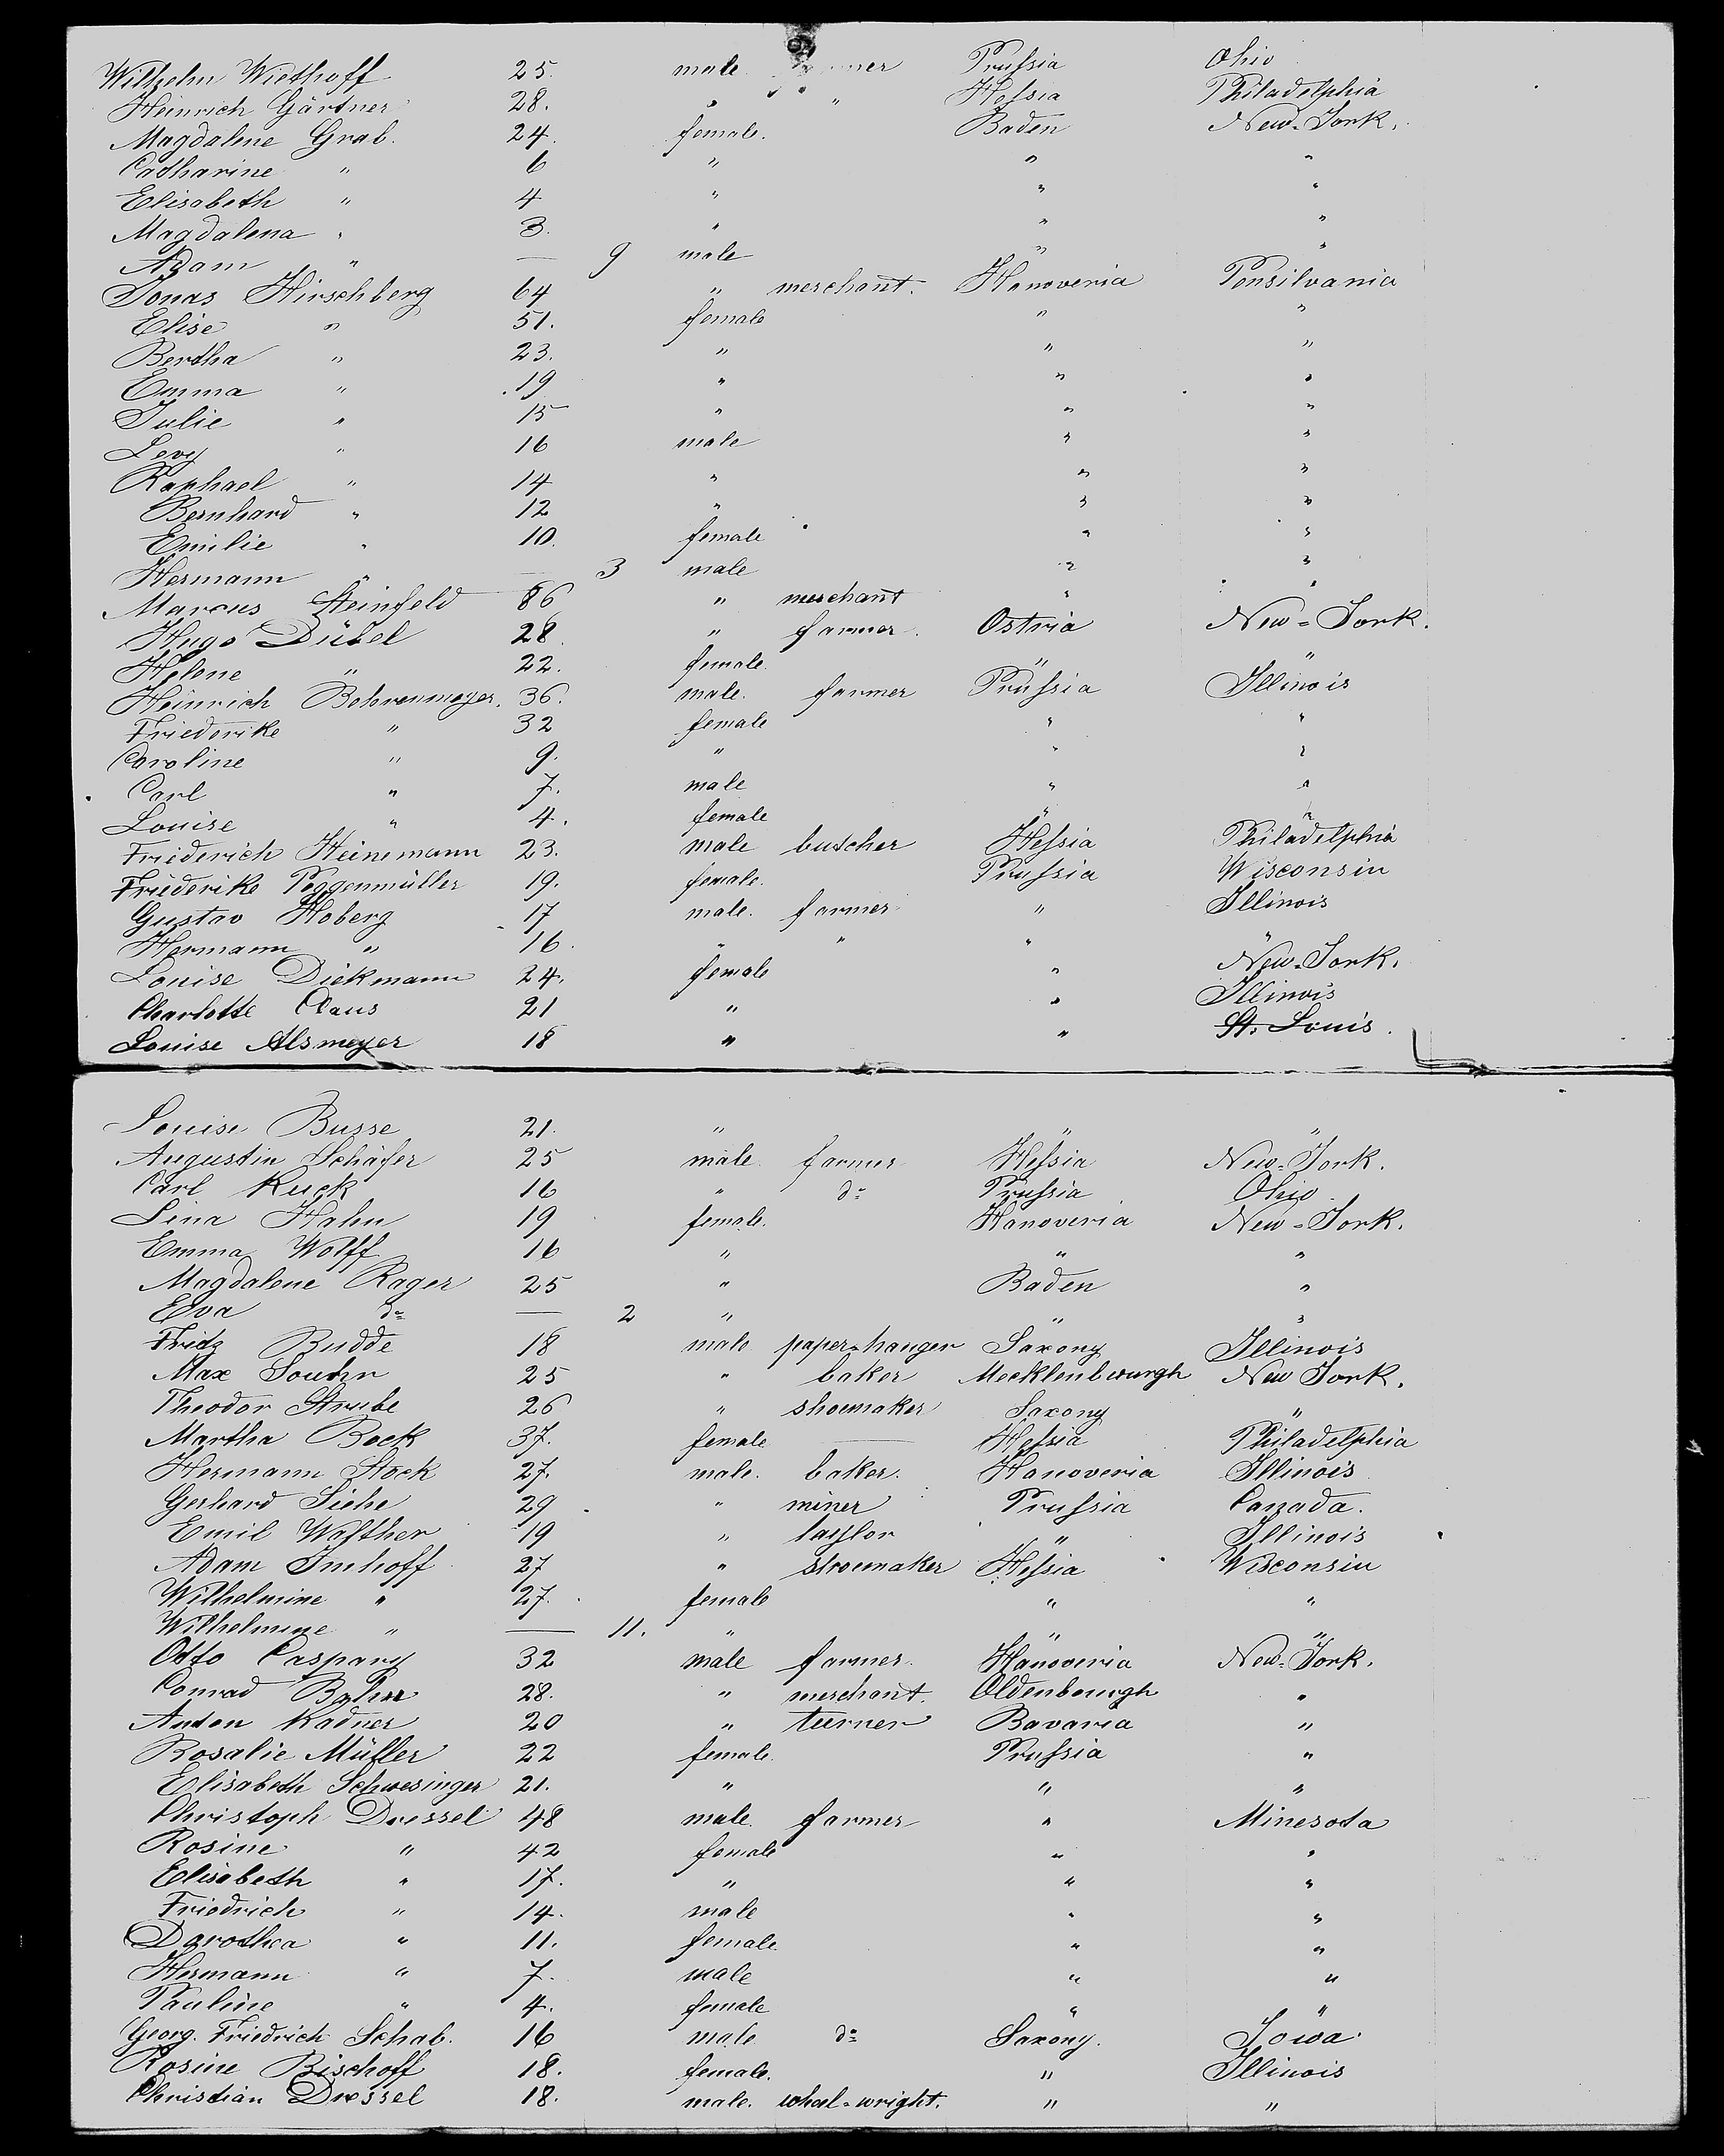 Wilhelm Wiethoff 25. male Prussia Ohio
Heinrich Gärtner 28. " " Hessia Philadelphia
Magdalene Grab. 24. female. Baden New-York.
Catharine " 6 " " "
Elisabeth " 4 " " "
Magdalena " 3. " " "
Adam " — 9 male " "
Jonas Hirschberg 64 " merchant. Hanoveria Pensilvania
Elise " 51. female " "
Bertha " 23. " " "
Emma " 19 " " "
Julie " 15 " " "
Levy " 16 male " "
Raphael " 14 " " "
Bernhard " 12 " " "
Emilie " 10. female " "
Hermann " — 3 male " "
Marcus Steinfeld 86 " merchant " "
Hugo Dübel 28. " farmer. Ostria New-York.
Helene " 22. female. " "
Heinrich Bohrenmeyer. 36. male. farmer Prussia Illinois
Friederike " 32 female " "
Caroline " 9. " " "
Carl " 7. male " "
Louise " 4. female " "
Friederich Heinemann 23. male butcher Hessia Philadelphia
Friederike Poggenmüller 19. female. Prussia Wisconsin
Gustav Hoberg 17 male. farmer " Illinois
Hermann " 16. " " " "
Louise Diekmann 24. female " New-York.
Charlotte Claus 21 " " Illinois
Louise Alsmeyer 18 " " St. Louis.
Louise Busse 21. " " "
Augustin Schäfer 25 male farmer Hessia New-York.
Carl Kuck 16 " do Prussia Ohio.
Lina Hahn 19 female. Hanoveria New-York.
Emma Wolff 16 " " "
Magdalene Rager 25 " Baden "
Eva do — 2 " " "
Fritz Budde 18 male paper-hanger Saxony Illinois
Max Souhr 25 " baker Mecklenbourgh New York.
Theodor Strube 26 " shoemaker Saxony "
Martha Bock 37. female — Hessia Philadelphia
Hermann Stock 27. male. baker. Hanoveria Illinois
Gerhard Siehe 29 " miner Prussia Canada.
Emil Walther 19 " taylor " Illinois
Adam Imhoff 27 " shoemaker Hessia Wisconsin
Wilhelmine " 27. female " "
Wilhelmine " — 11. " " "
Otto Caspary 32 male farmer. Hanoveria New-York.
Conrad Bahr 28. " merchant. Oldenbourgh "
Anton Kadner 20 " turner Bavaria "
Rosalie Müller 22 female. Prussia "
Elisabeth Schwesinger 21. " " "
Christoph Dressel 48 male. farmer " Minesota
Rosine " 42 female " "
Elisabeth " 17. " " "
Friedrich " 14. male " "
Dorothea " 11. female. " "
Hermann " 7. male " "
Pauline " 4. female " "
Georg. Friedrich Schab. 16 male do Saxony. Iowa
Rosine Bischoff 18. female. " Illinois
Christian Dressel 18. male. wheel-wright. " "